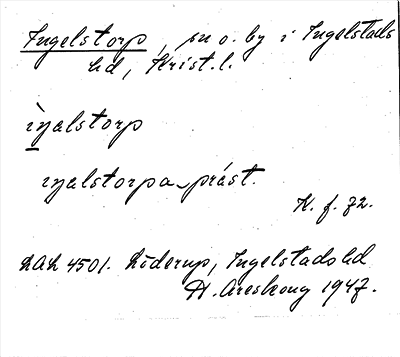 Ingelstorp, sn o. by i Ingelstads
hd, Krist. l.
ìŋalstorp
iŋalstorpa-präst.
K. f. 72.
LAL 4501. Löderup, Ingelstads hd
H. Areskoug 1947.